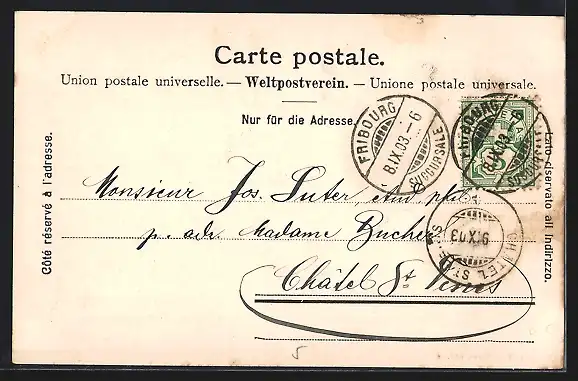 Carte postale.
Union postale universelle. — Weltpostverein. — Unione postale universale.
Nur für die Adresse.
Côté réservé à l'adresse.
Lato riservato all' indirizzo.
FRIBOURG
8.IX.03.-6
SUCCURSALE
FRIBOURG
8.IX.03.-6
SUCCURSALE
CHATEL ST DENIS
9.IX.03
Monsieur Jos. Suter, phil.
p. adr. Madame Bucher
Châtel St Denis
5